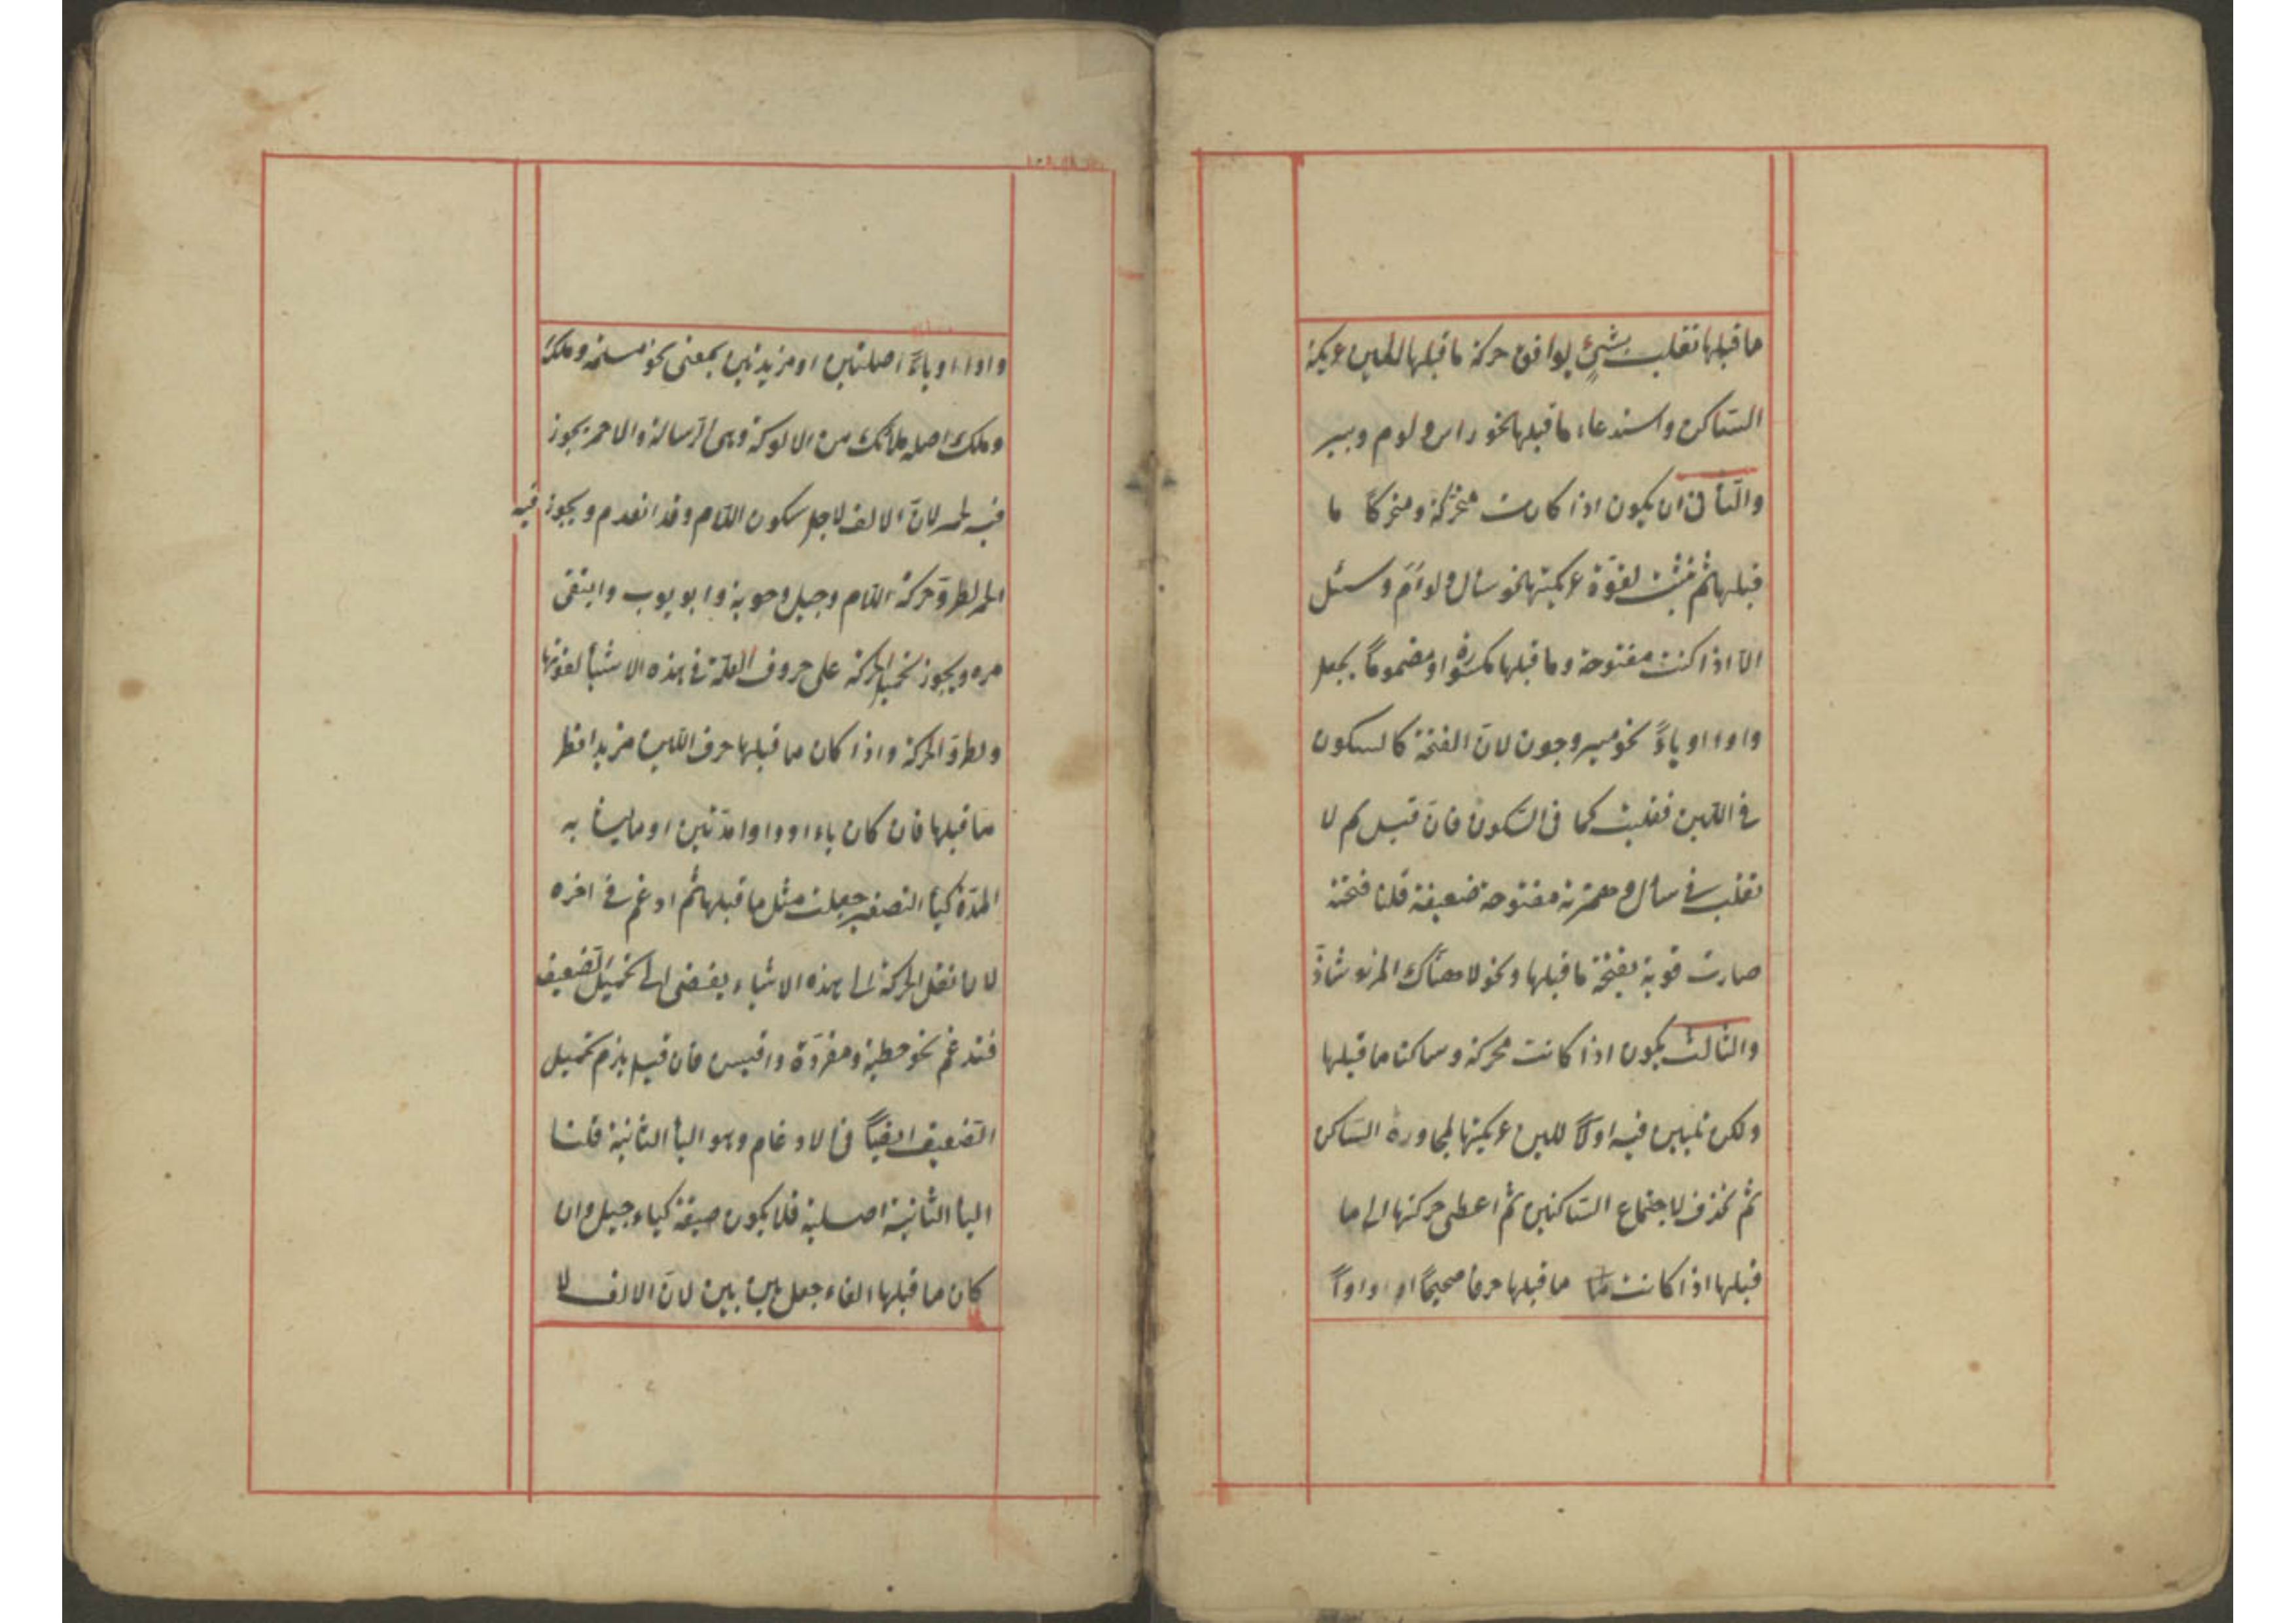 ما قبلها تقلب بشئ يوافق حركة ما قبلها للين عريكة
الساكن واستدعاء ما قبلها نحو راس ولوم وبير
والثانى ان يكون اذا كانت متحركة ومتحركا ما
قبلها ثم تثبت لقوة عريكتها نحو سال ولوأم وسئل
الا اذا كنت مفتوحة وما قبلها مكسورة او مضموما يجعل
واوا او ياءً نحو مير وجون لان الفتحة كالسكون
فى اللين فقلبت كما فى السكون فان قيل لم لا
تقلب فى سأل وهمزته مفتوحة ضعيفة قلنا فتحته
صارت قوية بفتحة ما قبلها ونحو لا هناك المرتع شاذ
والثالث يكون اذا كانت محركة وساكنا ما قبلها
ولكن تليين فيه اولا للين عريكتها لمجاورة الساكن
ثم تحذف لاجتماع الساكنين ثم اعطى حركتها الى ما
قبلها اذا كانت ما قبلها حرفا صحيحا او واواً
واوا او ياءً اصليتين او مزيدتين بمعنى نحو مسلة وملك
وملك اصله ملأك من الالوكة وهى الرسالة والاحمر يجوز
فيه لحمر لان الالف لاجل سكون اللام وقد انعدم ويجوز فيه
الحمر لطرو حركة اللام وجيل وحوبة وابو يوب وابتغى
مره ويجوز تحميل الحركة على حروف العلة فى هذه الاشيأ لقوتها
ولطرو الحركة واذا كان ما قبلها حرف اللين مزيدا نظر
ما قبلها فان كان ياء او واوا مدتين او ما يشابه
المدة كيأ التصغير جعلت مثل ما قبلها ثم ادغم فى اخره
لان نقل الحركة الى هذه الاشياء يفضى الى تحميل الضعيف
فتدغم نحو خطية ومقروة وافيس فان قيل يلزم تحميل
الضعيف ايضاً فى الادغام وهو اليأ الثانية قلنا
اليأ الثانية اصلية فلا يكون ضعيفة كياء جيل وان
كان ما قبلها الفاء جعل بين بين لان الالف لا